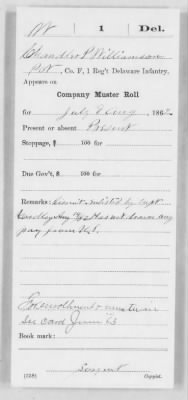 W | 1 | Del.
Chandler P Williamson
Pvt, Co. F, 1 Reg't Delaware Infantry.
Appears on
Company Muster Roll
for July & Aug, 1862
Present or absent Present
Stoppage, $ 100 for
Due Gov't, $ 100 for
Remarks: Recruit enlisted by Capt
Aug Has not drawn any
pay from U.S.
For enrollment & muster in
see card June 63
Book mark:
(358) Copyist.